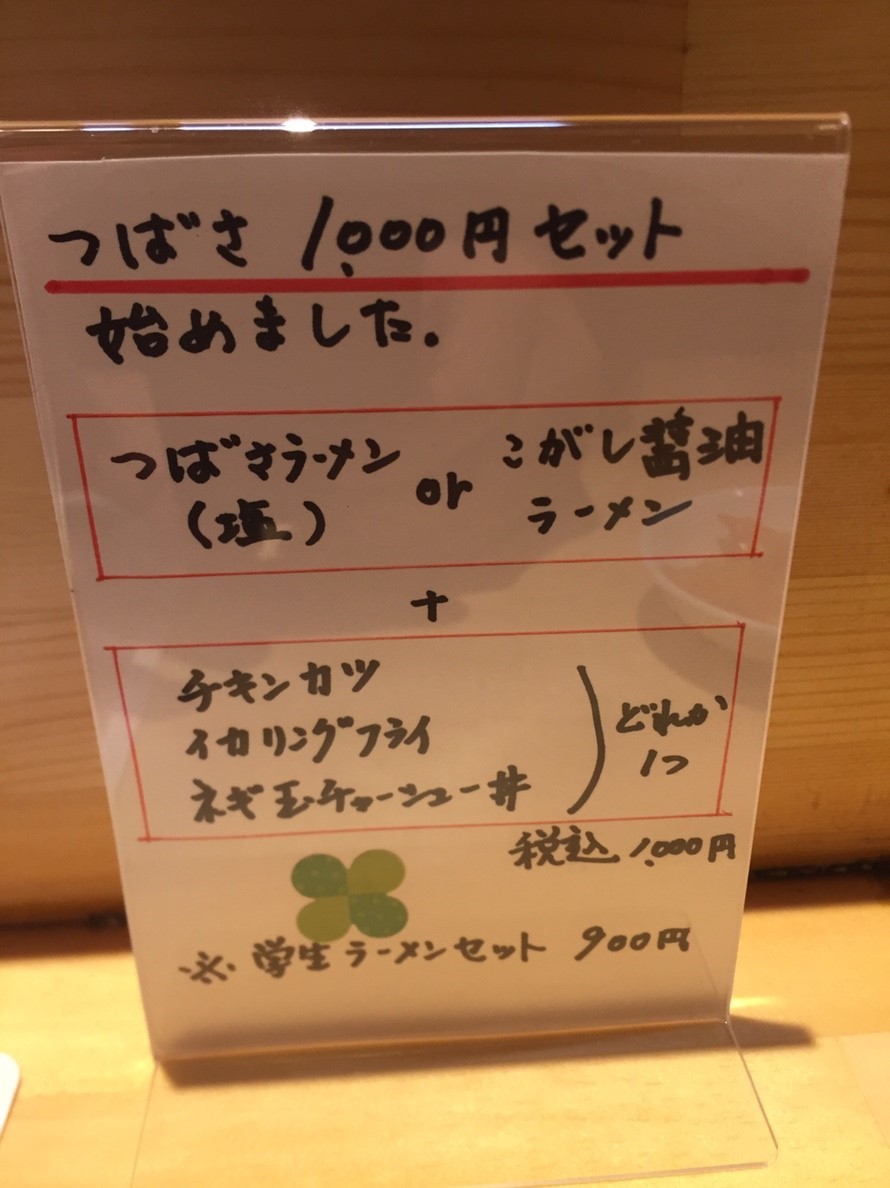 つばさ 1,000円セット
始めました。
つばさラーメン
(塩)
or
こがし醤油
ラーメン
+
チキンカツ
イカリングフライ
ネギ玉チャーシュー丼
どれか
1つ
税込 1,000円
※ 学生ラーメンセット 900円